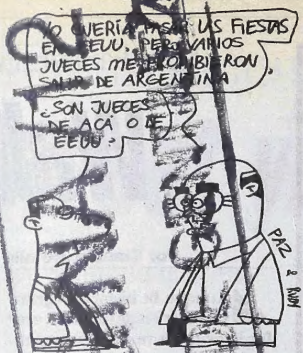 YO QUERÍA PASAR LAS FIESTAS
EN EEUU. PERO VARIOS
JUECES ME PROHIBIERON
SALIR DE ARGENTINA
¿SON JUECES
DE ACÁ O DE
EEUU?
PAZ
& RUDY